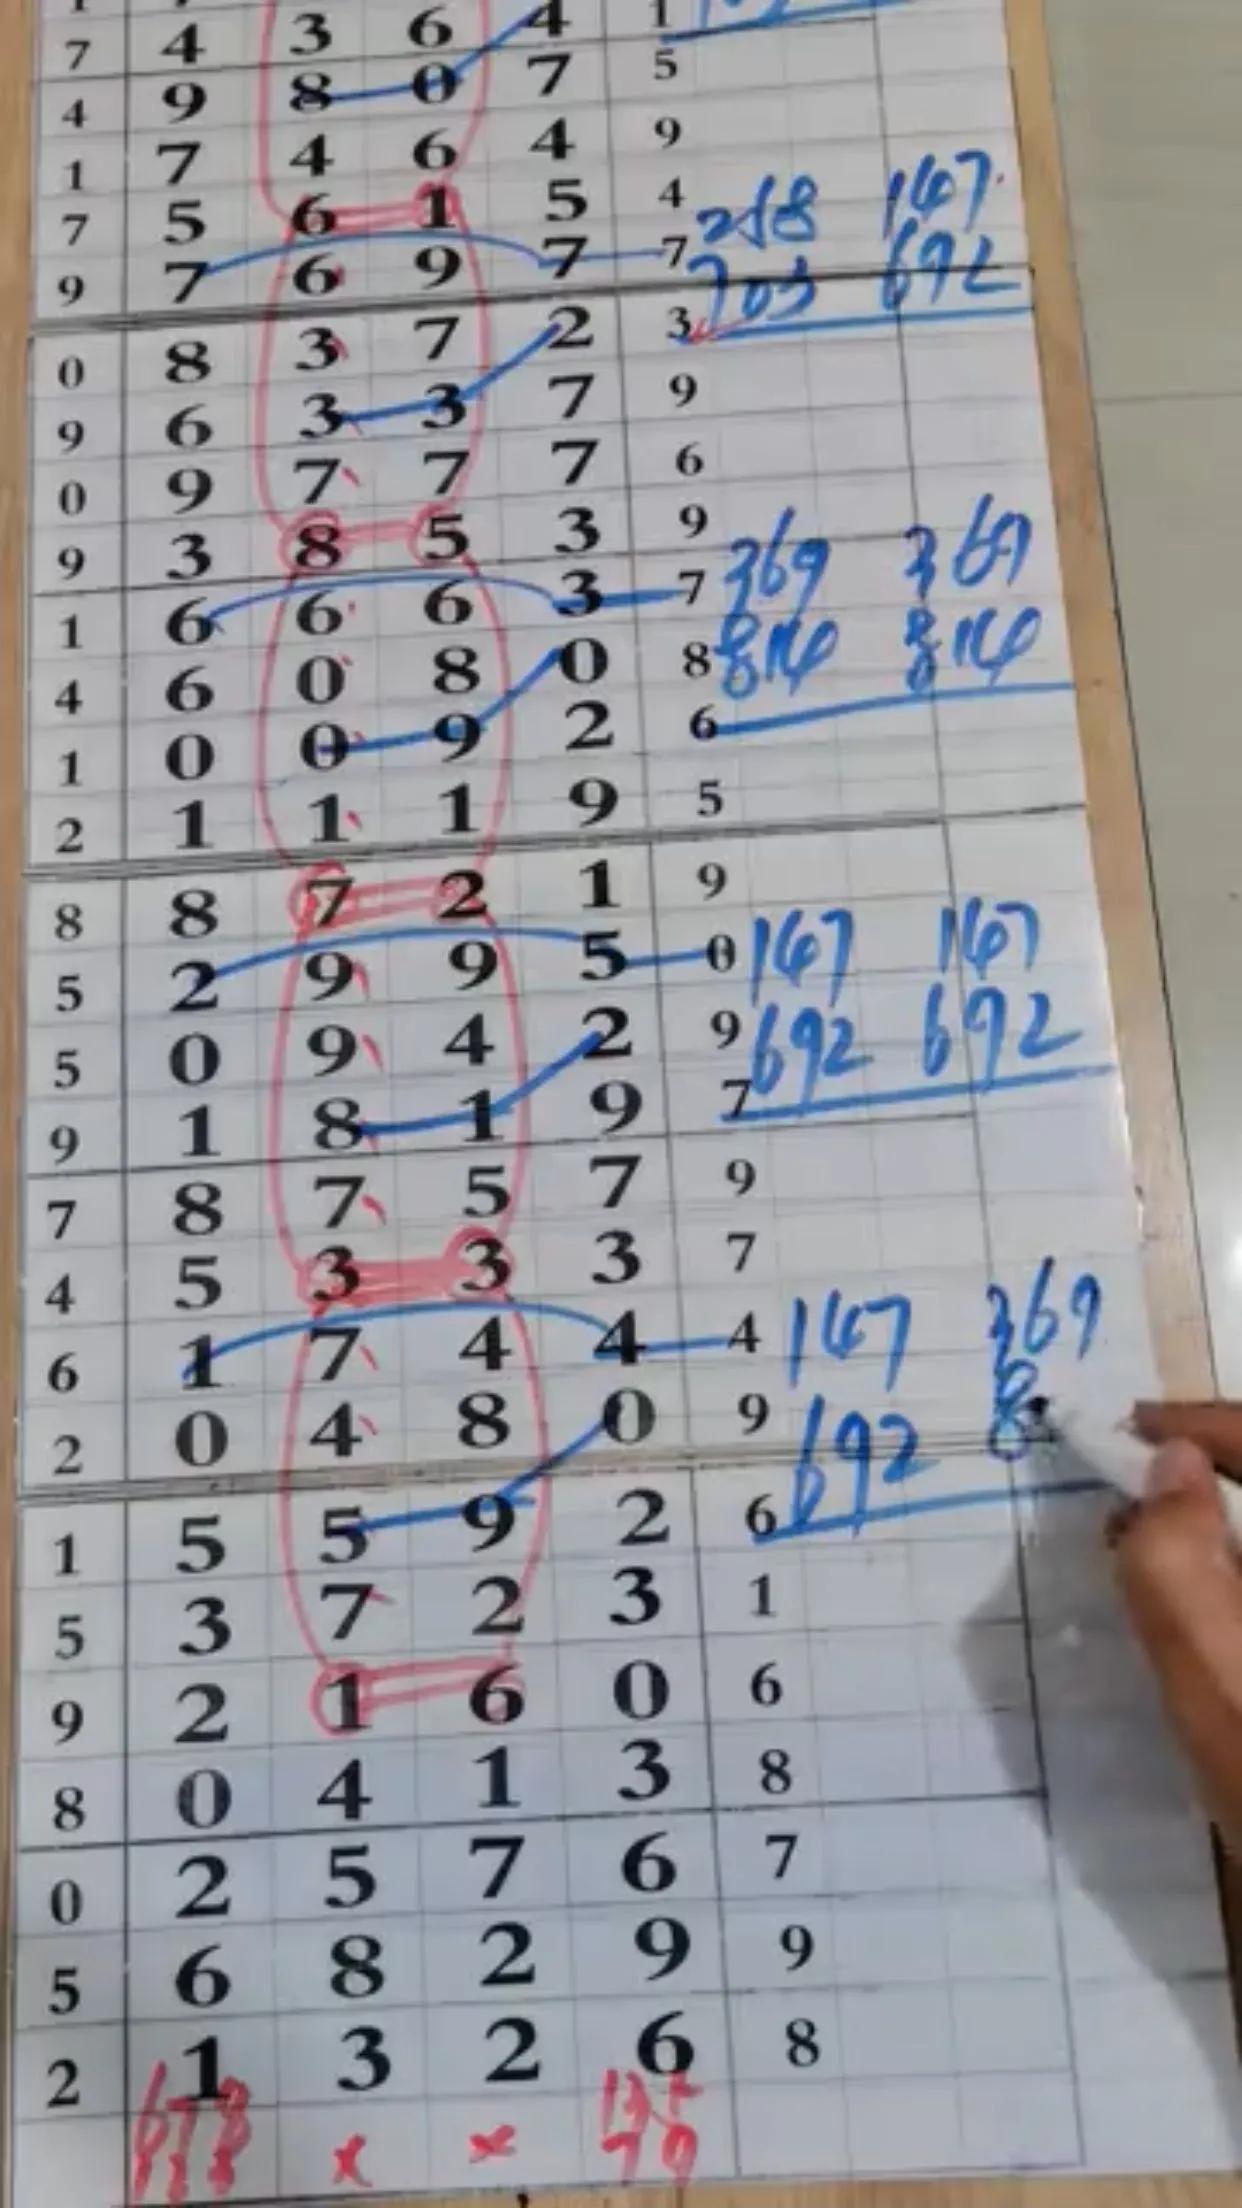 7 4 3 6 4 1
4 9 8 0 7 5
1 7 4 6 4 9
7 5 6 1 5 4 258 147
9 7 6 9 7 7 703 692
0 8 3 7 2 3
9 6 3 3 7 9
0 9 7 7 7 6
9 3 8 5 3 9
1 6 6 6 3 7 369 369
4 6 0 8 0 8 814 814
1 0 0 9 2 6
2 1 1 1 9 5
8 8 7 2 1 9
5 2 9 9 5 0 147 147
5 0 9 4 2 9 692 692
9 1 8 1 9 7
7 8 7 5 7 9
4 5 3 3 3 7
6 1 7 4 4 4 147 369
2 0 4 8 0 9 692 8
1 5 5 9 2 6
5 3 7 2 3 1
9 2 1 6 0 6
8 0 4 1 3 8
0 2 5 7 6 7
5 6 8 2 9 9
2 1 3 2 6 8
678 x x 135
79